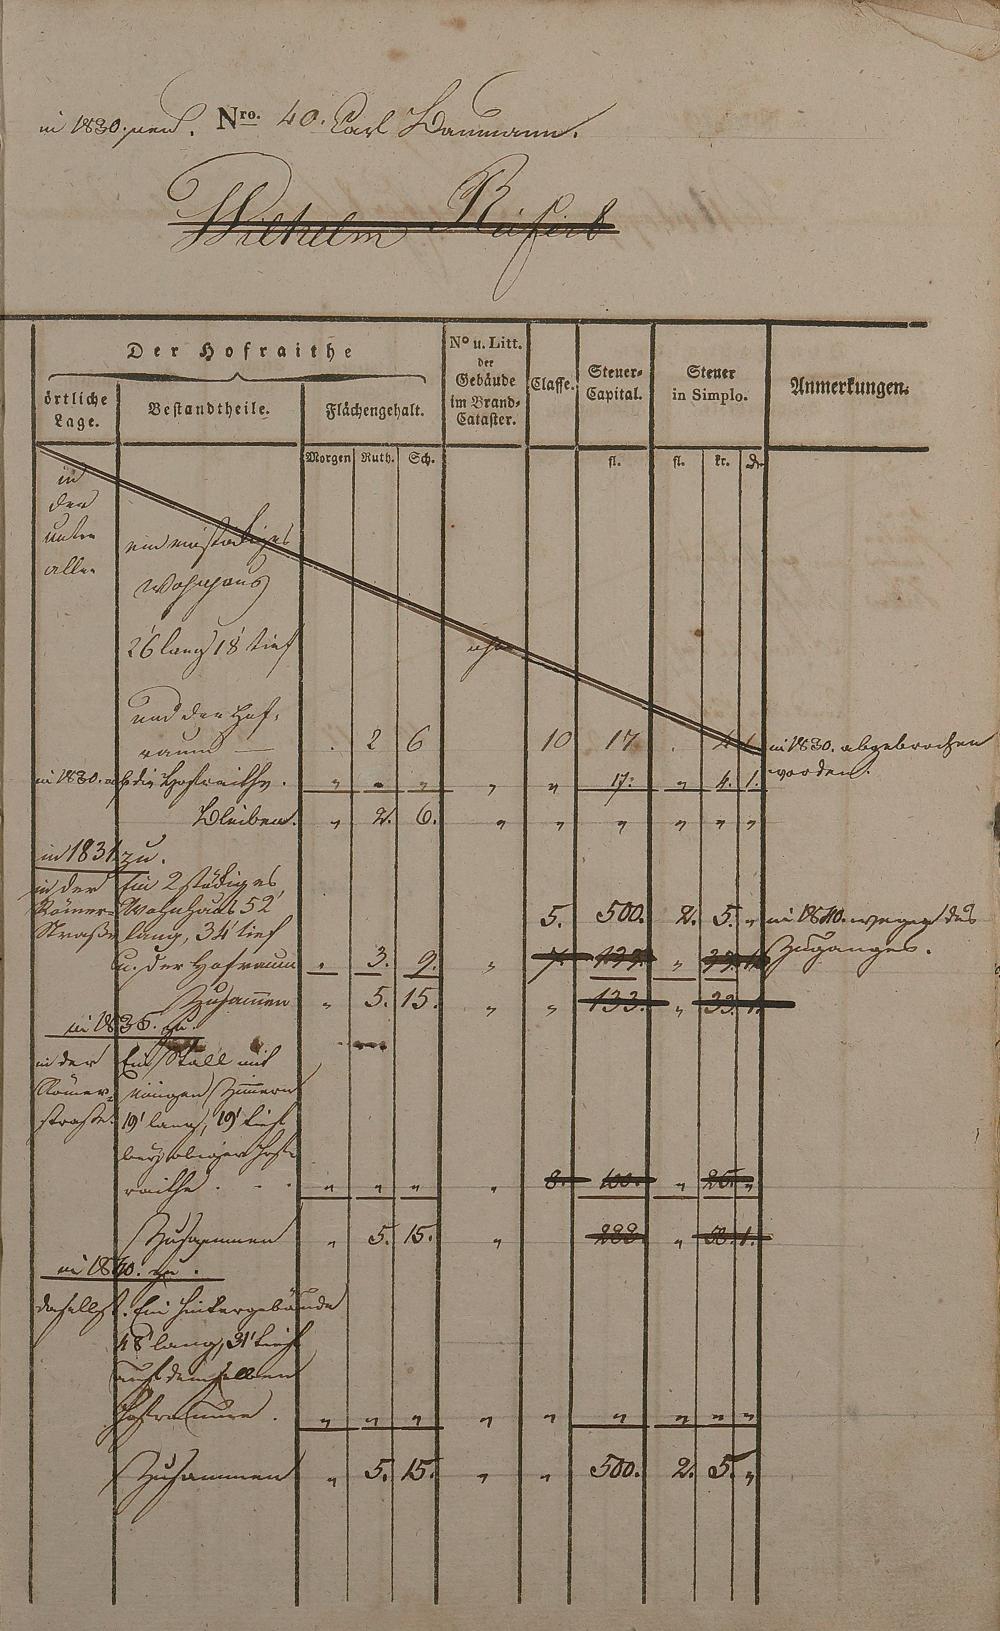 in 1830. Nro. 40. Carl Baumann.
Wilhelm
Der Hofraithe
örtliche Lage.
Bestandtheile.
Flächengehalt.
No u. Litt. der Gebäude im Brand-Cataster.
Classe.
Steuer-Capital.
Steuer in Simplo.
Anmerkungen.
Morgen Ruth. Sch. fl. fl. kr. d.
in
der
unter
allee
ein einstödiges
Wohnhaus
26 lang 18 tief
und der Hof-
raum — . 2 6 10 17 . 4 1 in 1830. abgebrochen
worden.
in 1830. ab die Hofraithe. " " " " " 17. " 4. 1.
Bleiben. " 2. 6. " " " " " "
in 1831 zu.
in der Ein 2 städiges
Römer- Wohnhaus 52' 5. 500. 2. 5. " in 1840. wegen des
Straße lang, 34' tief Zuganges.
u. der Hofraum " 3. 9. " 7. 133. " 33. 1.
Zusammen " 5. 15. " " 133. " 33. 1.
in 1836. zu.
in der Ein Stall mit
Römer- einigen Zimmern
straße. 19' lang, 19' tief
bey obiger Hof-
raithe . . . " " " " 8. 100. " 25. "
Zusammen " 5. 15. " 233. " 58. 1.
in 1840. zu.
daselbst. Ein Hintergebäude
48' lang, 31' tief
auf demselben
Hofraume. " " " " " " " " "
Zusammen " 5. 15. " " 500. 2. 5. "